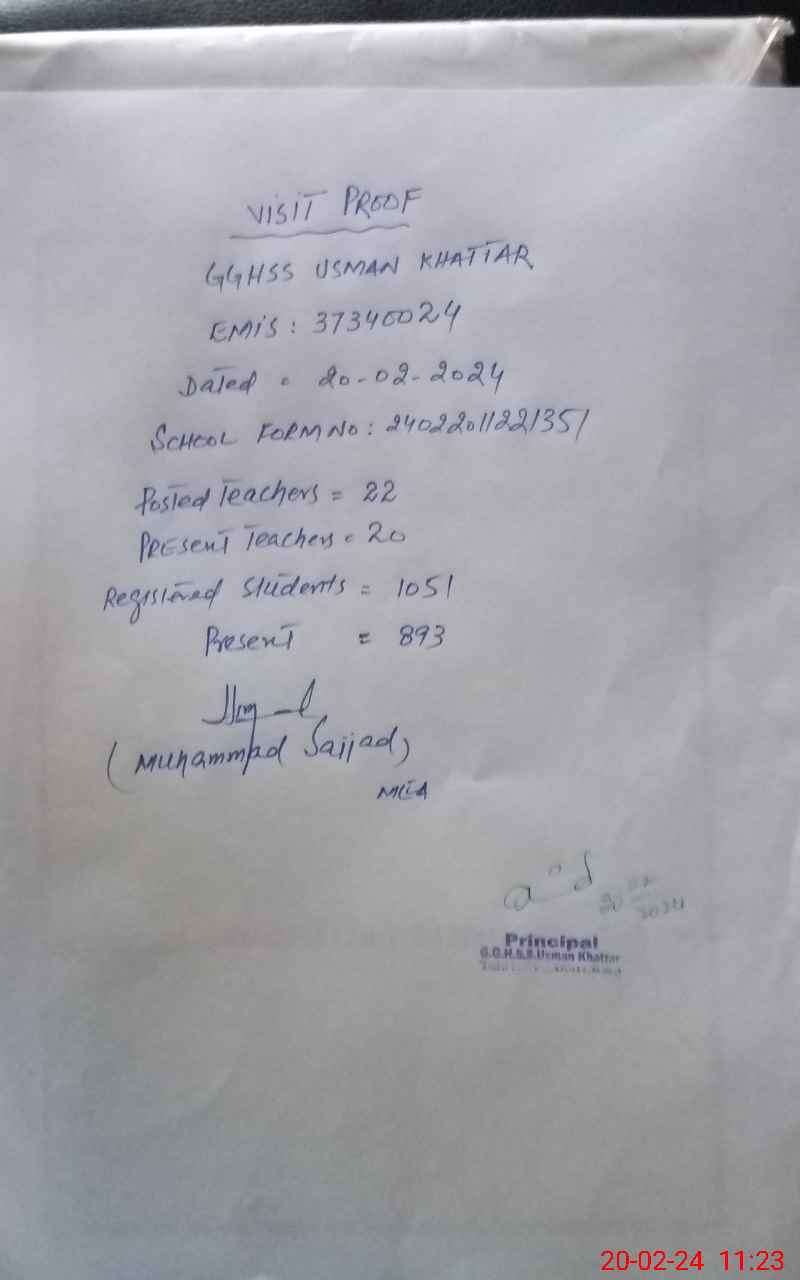 VISIT PROOF
GGHSS USMAN KHATTAR
EMIS: 37340024
Dated = 20-02-2024
SCHOOL FORM NO: 24022011221351
Posted Teachers = 22
PRESENT Teachers = 20
Registered Students = 1051
Present = 893
(Muhammad Sajjad)
MEA
20 02 2024
Principal
G.G.H.S.S. Usman Khattar
20-02-24 11:23